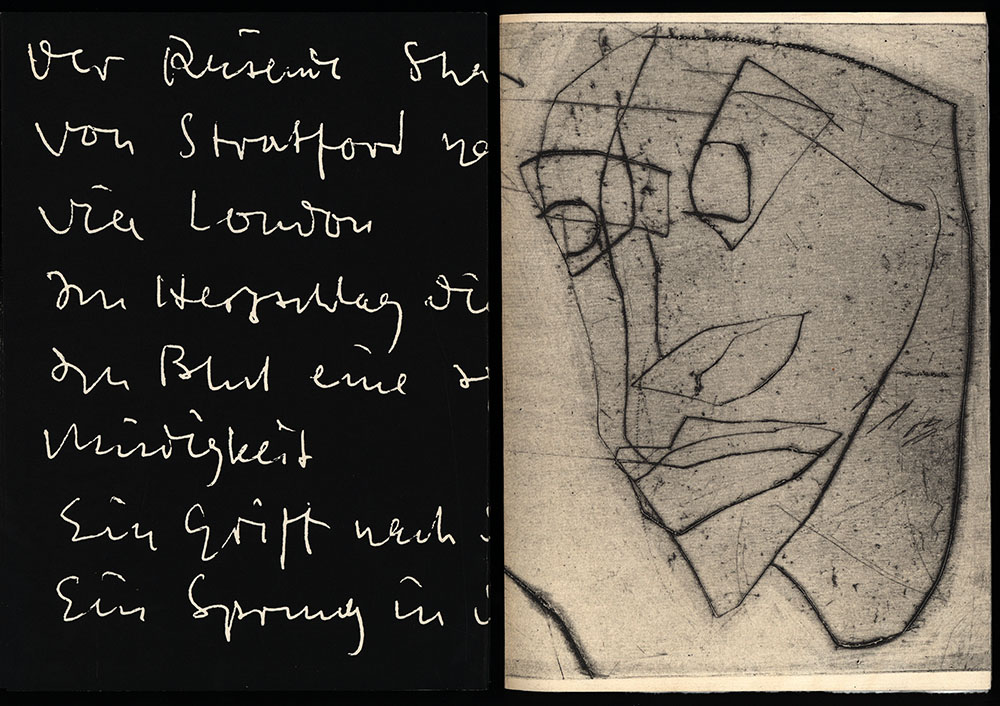 Der Reisende Sha
von Stratford na
via London
Im Herzschlag die
Im Blut eine
Müdigkeit
Ein Griff nach
Ein Sprung in